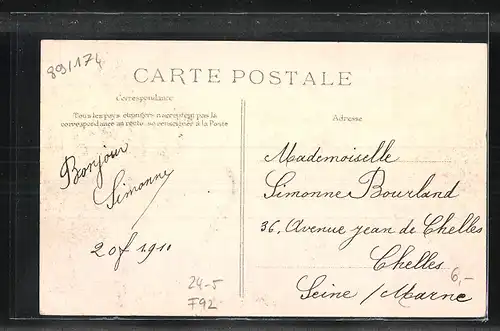 89/174
CARTE POSTALE
Correspondance
Tous les pays étrangers n'acceptent pas la
correspondance au recto, se renseigner à la Poste
Adresse
Bonjour
Simonne
20 f 1910
Mademoiselle
Simonne Bourland
36, Avenue jean de Chelles
Chelles
Seine / Marne
24-5
F92
6,-